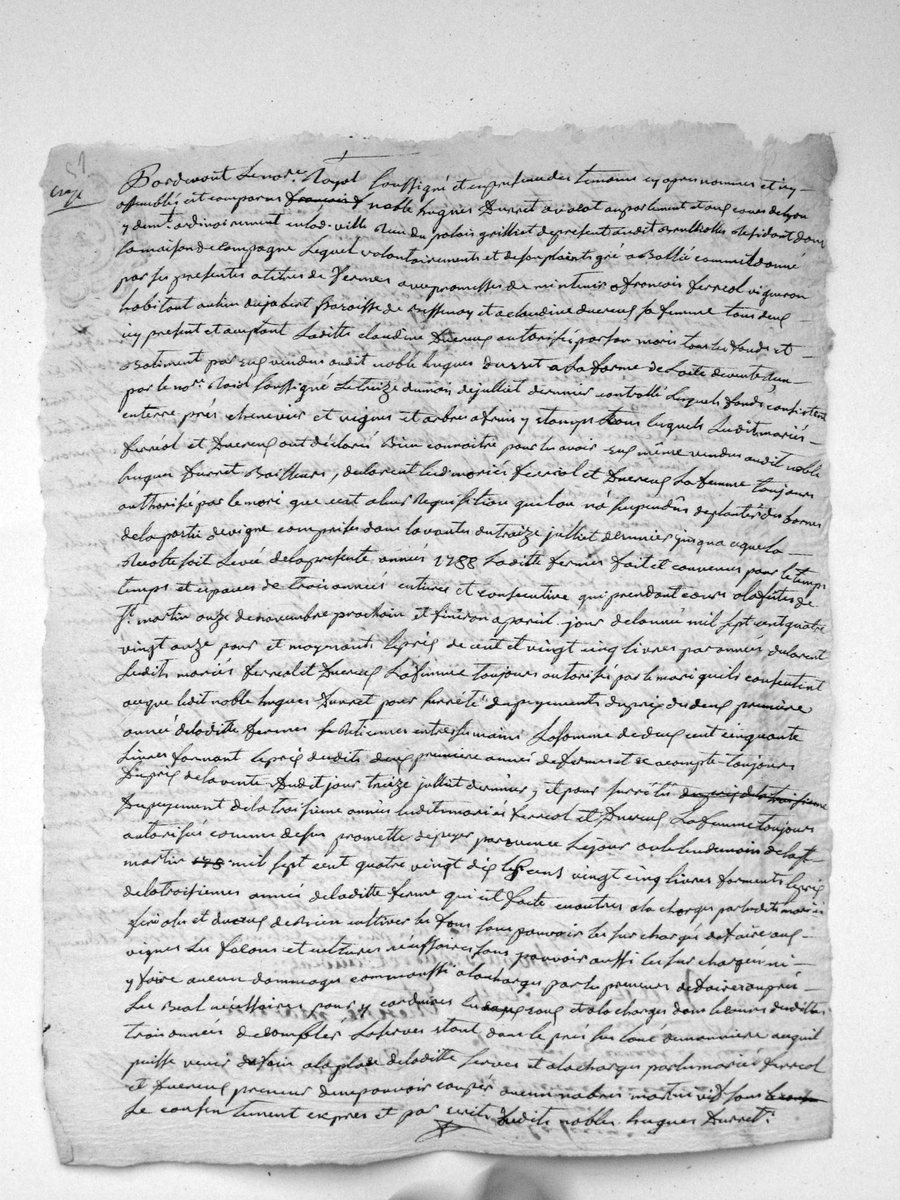 51
Pardevant Le not.re Royal soussigné et en presence des temoins cy apres nommes et icy
assemblés est comparus noble hugues Durret avocat au parlement et aux cours de Lyon
y dem.t ordinairement en lad. ville Rue du palais grilliet de present audit Residant dans
sa maison de Campagne Lequel volontairements et de son plaint gré a Baillié comme il donne
par ses presentes a titres de fermes avec promesses de mintenir a francois ferreol vigneron
habitant au lieu du jabert Paroisse de Bessenay et a claudine Ducreux sa femme tous deux
icy present et acceptant Laditte claudine Ducreux autorisée par son mari tous les fonds et
Batiment par Eux vendus audit noble hugues Durret a La forme de Lacte de vente Reçu
par le not.re Roial soussigné Le treize du mois de julliet dernier controllé Lesquels fonds consistent
en terre, prés chenevier et vignes et arbre a fruis y etamps tous lesquels Lesdit mariés
ferréol et Ducreux ont déclaré Bien connaitre pour les avoir eux même vendus audit noble
hugues Durret Bailleurs, declarent lesd. mariés ferréol et Ducreux La femme toujours
authorisée par le mari que cest a leur Requisition que lon n'a suspendus de planter des bornes
de la partie de vigne comprises dans la vantes du traize julliet dernier jusqua ce que la
Recolte soit Levée de la presente années 1788 Laditte fermes fait et convenues pour le temps
temps et espaces de trois années entieres et consecutive qui prendont cours a la fêtes de
S.t martin onze de novembre prochain et finiron a pareil jour de lannée mil sept cent quatre
vingt onze pour et moynants le pris de cent et vingt cinq livres par années declarent
Lesdits mariés ferreol et Ducreux La femme toujours autorisée par le mari quils consentint
acque ledit noble hugues Durret pour surreté du payements du prix des deux première
année de laditte fermes Retiennes entre ses mains La somme de deux cent cinquante
Livres formant le pris desdits deux première années de fermes et a acompte toujours
Du pris de la vente Dudit jour traize julliet dernier, et pour surrétés du prix de la troisieme
Du payement de la troisieme années lesdits mariés ferreol et Ducreux La femme toujours
autorisée comme dessus promette de payer par avence le jour ou le lendemain de la St
martin mil sept cent quatre vingt dix Les cent vingt cinq livres forments le pris
de la troisiemes année de laditte ferme qui est faite en outres a la charges par lesdits mariés
ferréoles et ducreux de Bien cultiver les fons sans pouvoir les sur chargés de faire aux
vignes Les façons et cultures néssessaires sans pouvoir aussi les sur chargér ni
y faire aucun dommages comme aussi a la charges par les preneurs de faires au prés
Les Beal nécessaires pour y conduires les eaux et a la charges dans le cour desdittes
trois années de combler La serves etant dans le prés sus loué de manniere a ce quil
puisse venir du foin a la place de laditte serves et a la charges par les mariés ferreol
et Ducreux preneur de ne pouvoir coupér aucun arbres mort ni vif sans
Le consentement expres et par ecrits Dudits nobles hugues Durret.